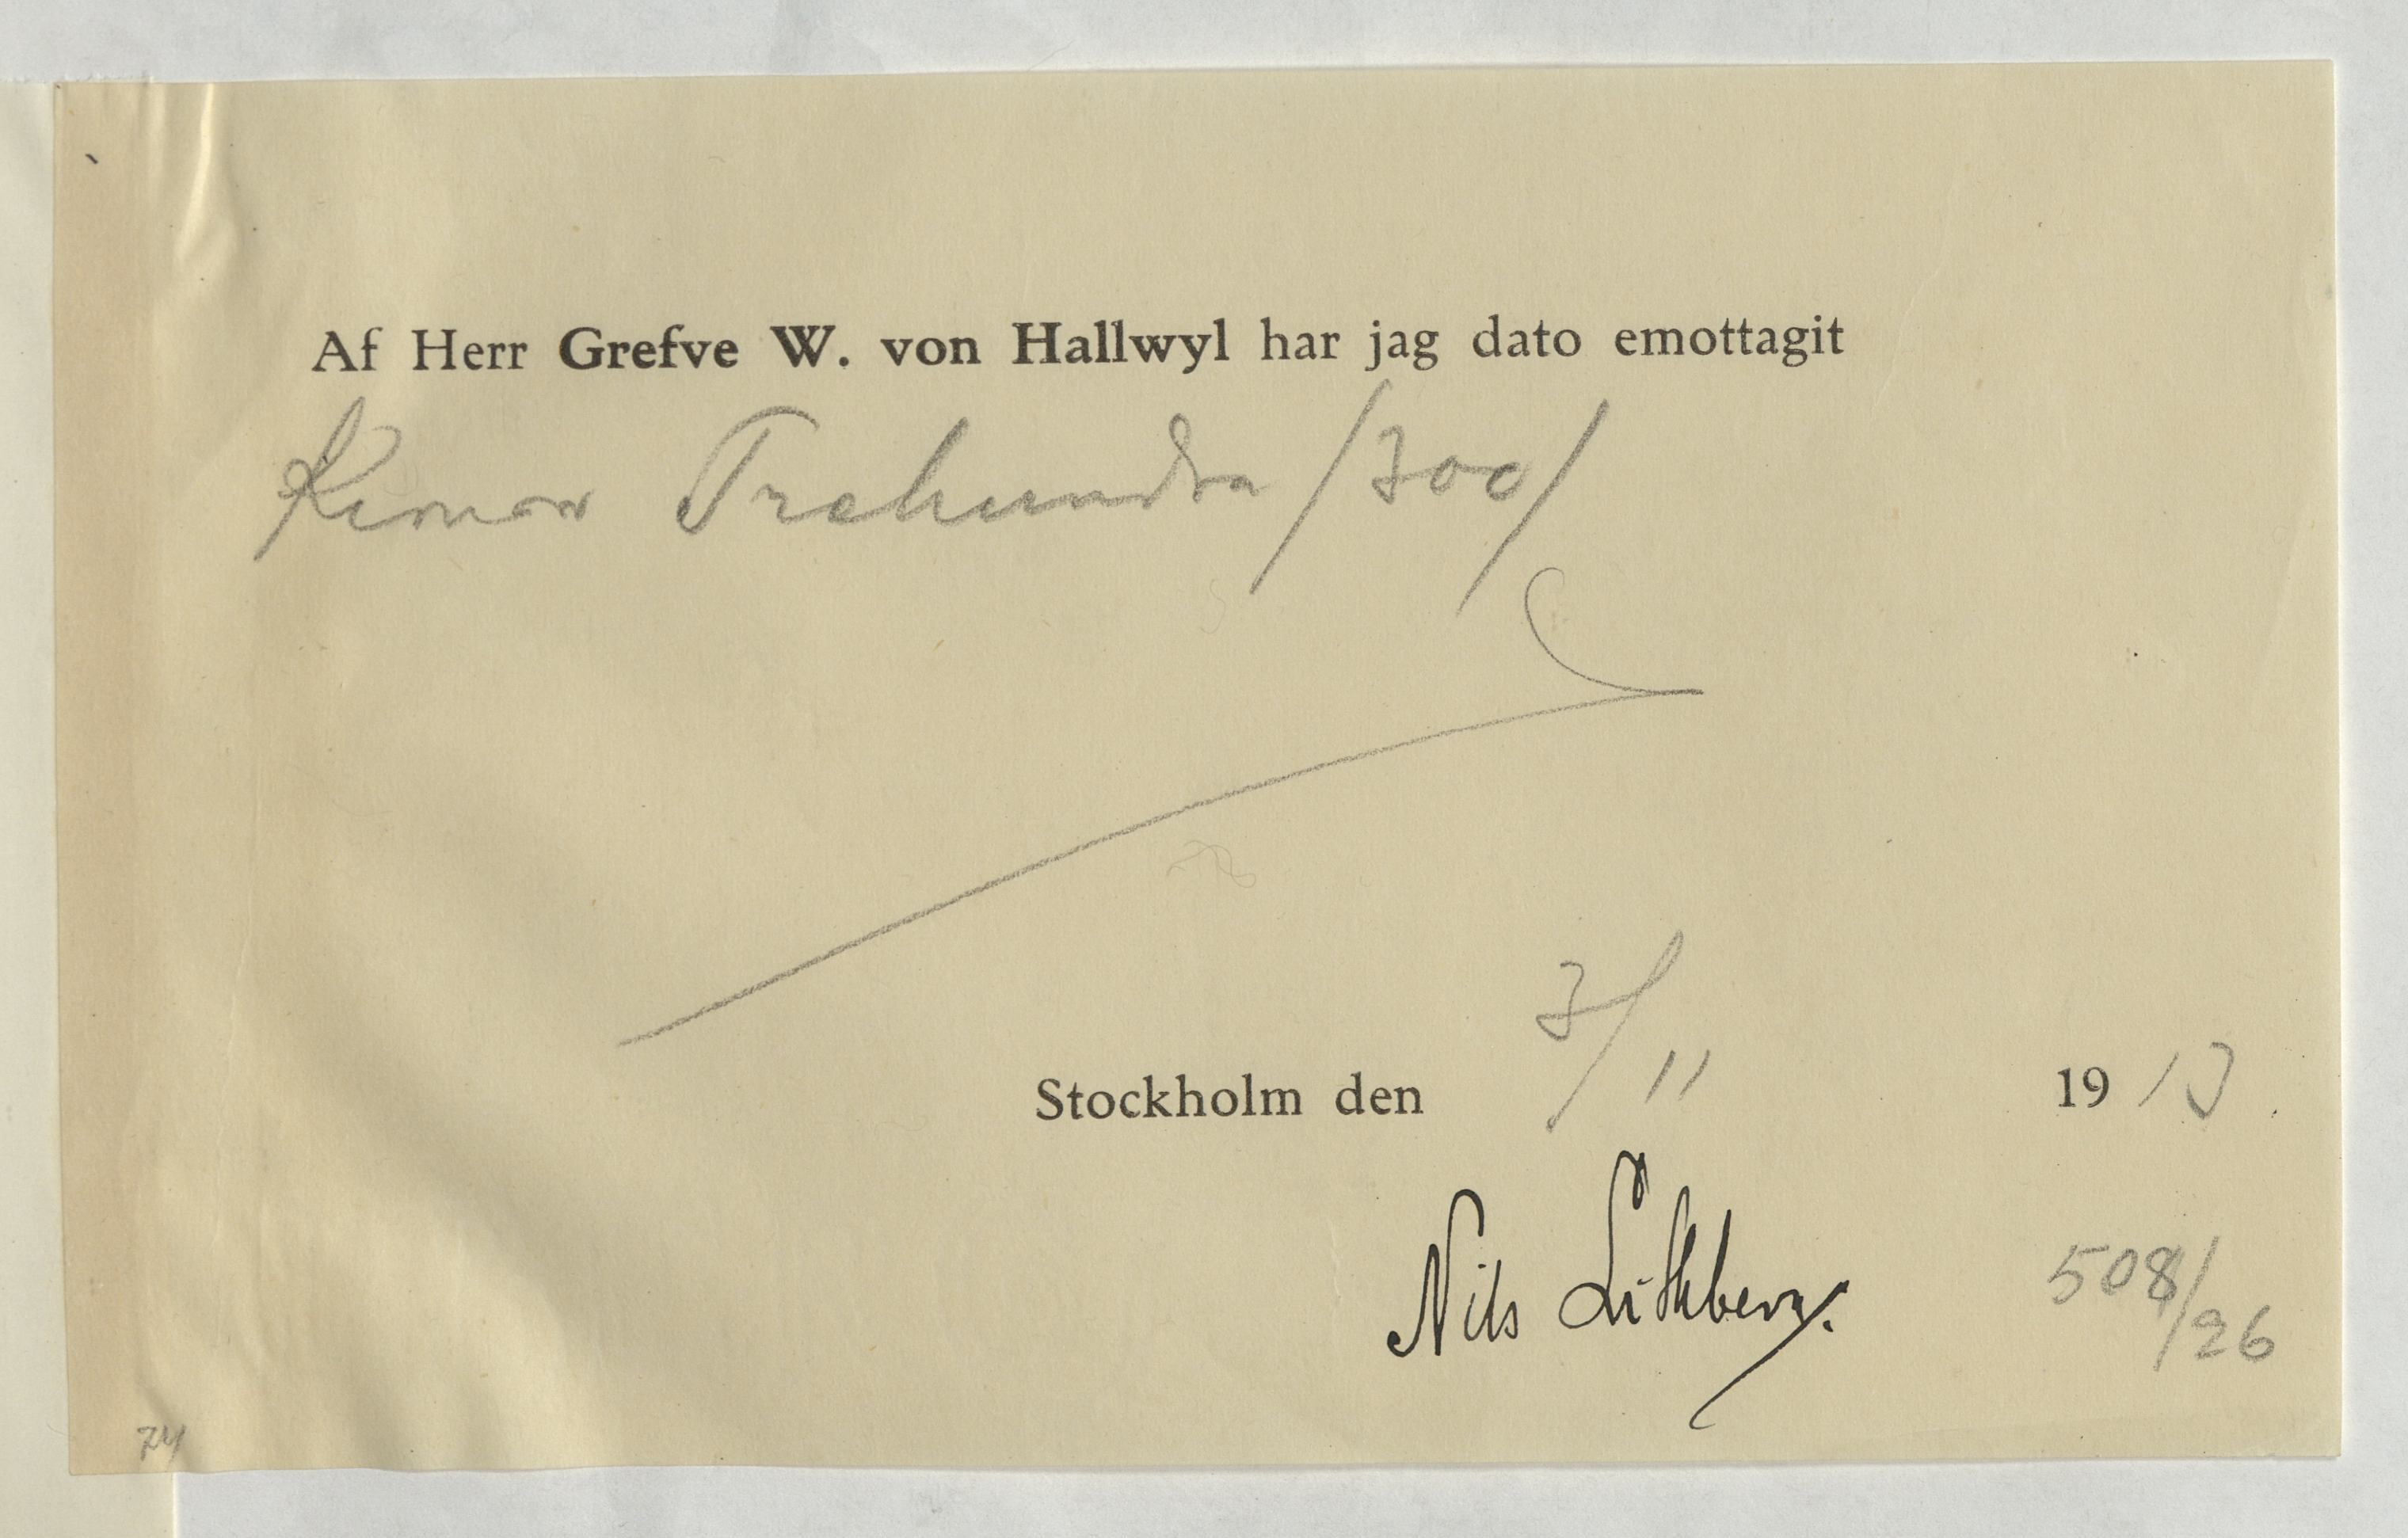 Af Herr Grefve W. von Hallwyl har jag dato emottagit
Kronor Trehundra /300/
Stockholm den 3/11 1913
Nils Lithberg.
508/26
74